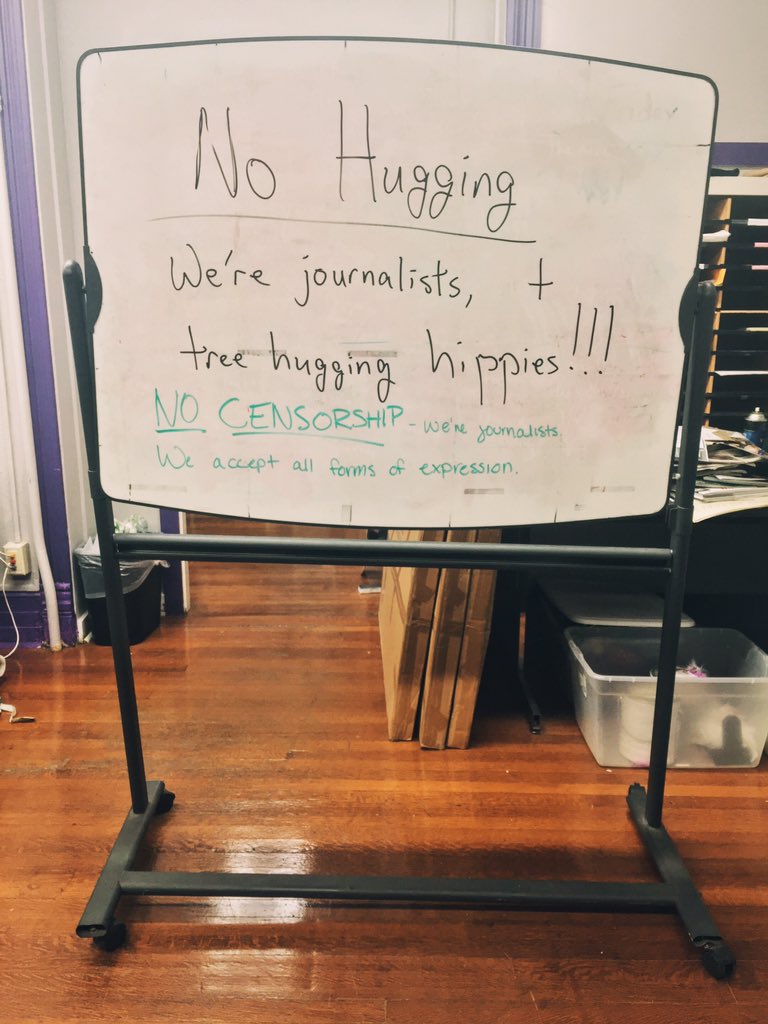 No Hugging
We're journalists, +
tree hugging hippies!!!
NO CENSORSHIP - we're journalists.
We accept all forms of expression.